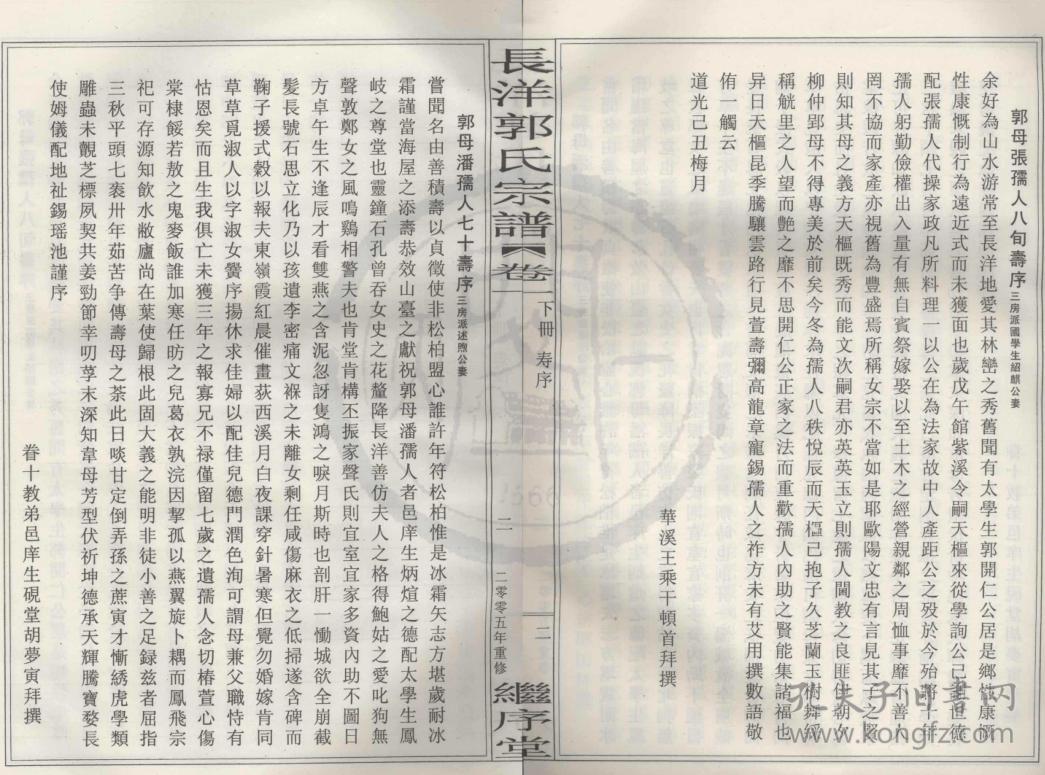 郭母張孺人八旬壽序 三房派國學生紹麒公妻
余好為山水游常至長洋地愛其林巒之秀舊聞有太學生郭開仁公居是鄉性康
性康慨制行為遠近式而未獲面也歲戊午館紫溪令嗣天樞來從學詢公己
配張孺人代操家政凡所料理一以公在為法家故中人產距公之歿於今殆將十年
孺人躬勤儉權出入量有無自賓祭嫁娶以至土木之經營親鄰之周恤事靡不善人
罔不協而家產亦視舊為豐盛焉所稱女宗不當如是耶歐陽文忠有言見其子之賢
則知其母之義方天樞既秀而能文次嗣君亦英英玉立則孺人閫教之良匪伊朝夕
柳仲郢母不得專美於前矣今冬為孺人八秩悅辰而天樞己抱子久芝蘭玉樹舞綵
稱觥里之人望而艷之靡不思開仁公正家之法而重歡孺人內助之賢能集諸福也
异日天樞昆季騰驤雲路行見萱壽彌高龍章寵錫孺人之祚方未有艾用撰數語敬
侑一觴云
華溪王乘干頓首拜撰
道光己丑梅月
長洋郭氏宗譜【卷一
下冊 寿序
二
二
二零零五年重修
繼序堂
郭母潘孺人七十壽序 三房派述煦公妻
嘗聞名由善積壽以貞徵使非松柏盟心誰許年符松柏惟是冰霜矢志方堪歲耐冰
霜謹當海屋之添壽恭效山臺之獻祝郭母潘孺人者邑庠生炳煊之德配太學生鳳
岐之尊堂也靈鐘石孔曾吞女史之花釐降長洋善仿夫人之格得鮑姑之愛叱狗無
聲敦鄭女之風鳴鷄相警夫也肯堂肯構丕振家聲氏則宜室宜家多資內助不圖日
方卓午生不逢辰才看雙燕之含泥忽訝隻鴻之唳月斯時也剖肝一慟城欲全崩截
髮長號石思立化乃以孩遺李密痛文褓之未離女剩任咸傷麻衣之低掃遂含碑而
鞠子援式穀以報夫東嶺霞紅晨催畫荻西溪月白夜課穿針暑寒但覺勿婚嫁肯同
草草覓淑人以字淑女黌序揚休求佳婦以配佳兒德門潤色洵可謂母兼父職恃有
怙恩矣而且生我俱亡未獲三年之報寡兄不禄僅留七歲之遺孺人念切椿萱心傷
棠棣餒若敖之鬼麥飯誰加寒任昉之兒葛衣孰浣因挈孤以燕翼旋卜耦而鳳飛宗
祀可存源知飲水敝廬尚在葉使歸根此固大義之能明非徒小善之足録兹者屈指
三秋平頭七袠卅年茹苦争傳壽母之荼此日啖甘定倒弄孫之蔗寅才慚綉虎學類
雕蟲未覿芝標夙契共姜勁節幸叨莩末深知韋母芳型伏祈坤德承天輝騰寶婺長
使姆儀配地祉錫瑶池謹序
眷十教弟邑庠生硯堂胡夢寅拜撰
孔夫子旧書网
www.kongfz.com